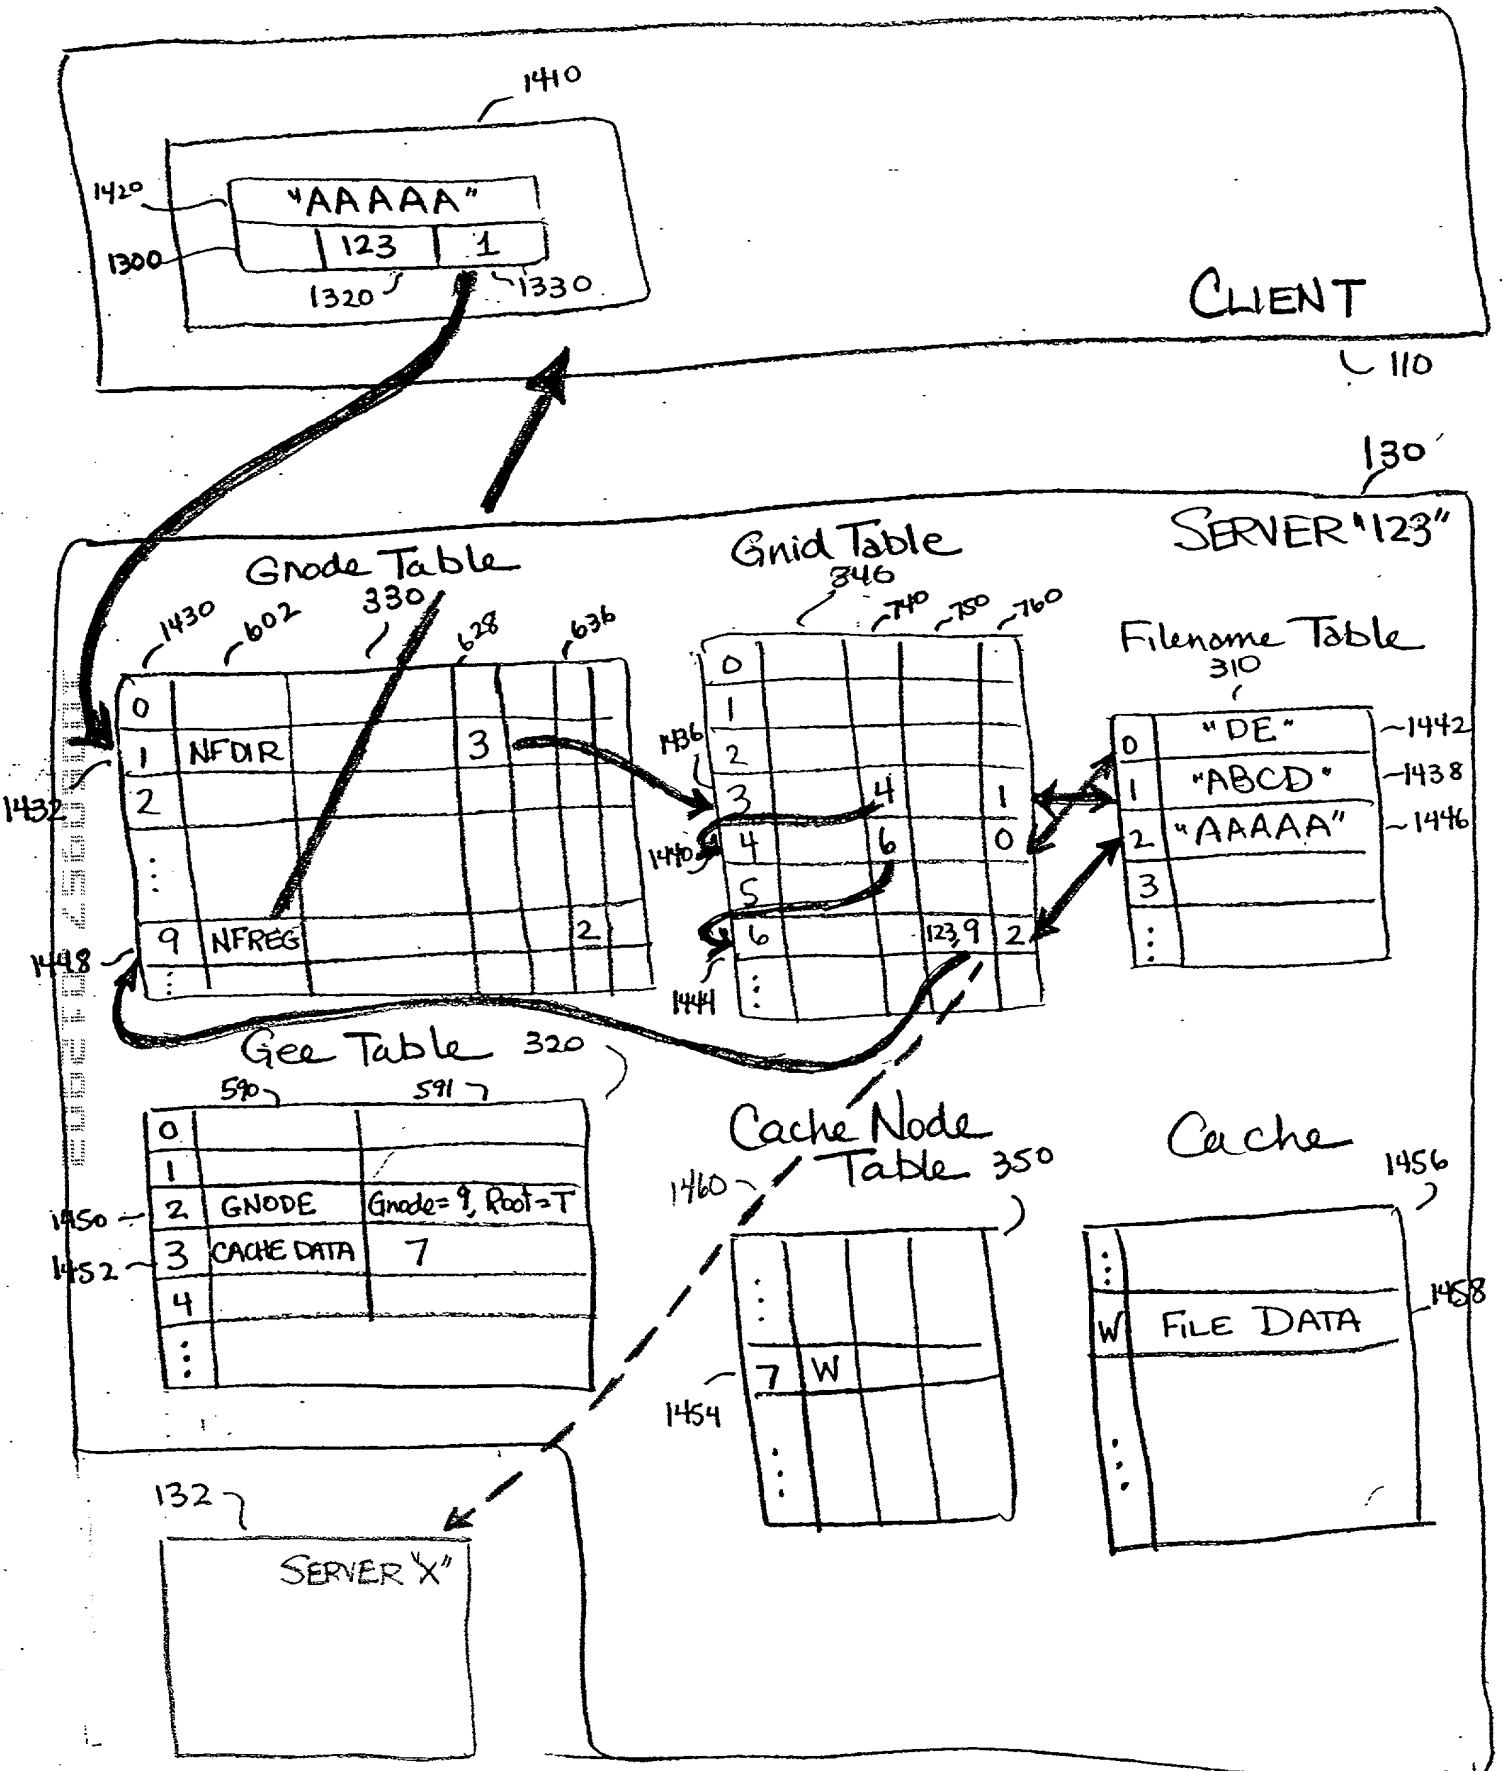 1410
1420
"AAAAA"
1300
123
1
1320
1330
CLIENT
110
130
SERVER "123"
Gnode Table
330
1430
602
628
636
0
1
NFDIR
3
1432
2
9
NFREG
2
1448
Gnid Table
346
740
750
760
0
1
2
1436
3
4
1
1440
4
6
0
5
6
123,9
2
1444
Filename Table
310
0
"DE"
1442
1
"ABCD"
1438
2
"AAAAA"
1446
3
Gee Table 320
590
591
0
1
1450
2
GNODE
Gnode=9, Root=T
1452
3
CACHE DATA
7
4
Cache Node
Table 350
1460
7
W
1454
Cache
1456
W
FILE DATA
1458
132
SERVER "X"